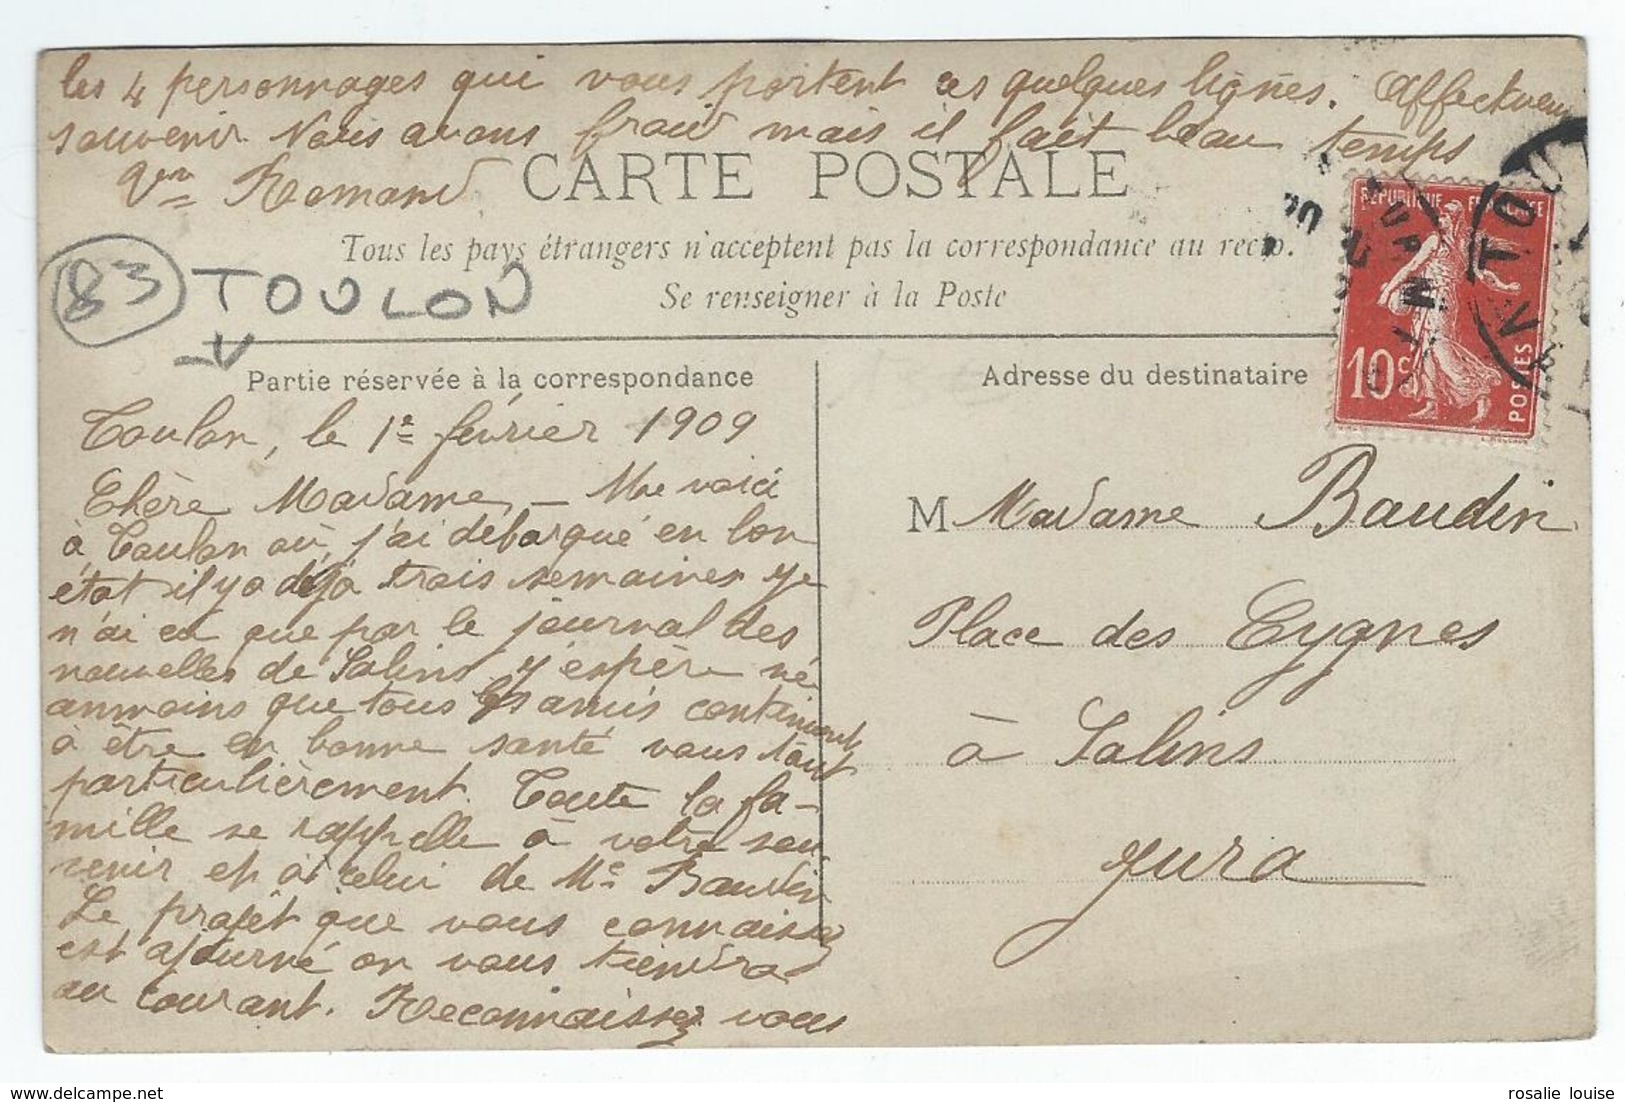 les 4 personnages qui vous portent ces quelques lignes. Affectueux
souvenir. Nous avons froid mais il fait beau temps
Vve Remond
CARTE POSTALE
Tous les pays étrangers n'acceptent pas la correspondance au recto.
Se renseigner à la Poste
83 TOULON
Partie réservée à la correspondance
Toulon, le 1e février 1909
Chère Madame, - Me voici
à Toulon où j'ai débarqué en bon
état il y a déjà trois semaines je
n'ai eu que par le journal des
nouvelles de Salins j'espère né
anmoins que tous les amis continuent
à être en bonne santé vous tout
particulièrement. Toute la fa-
mille se rappelle à votre sou
venir et à celui de Me Baudin
Le projet que vous connaissez
est ajourné on vous tiendra
au courant. Reconnaissez vous
Adresse du destinataire
REPUBLIQUE FRANÇAISE
10c
POSTES
TOUL
M Madame Baudin
Place des Cygnes
à Salins
Jura
rosalie louise